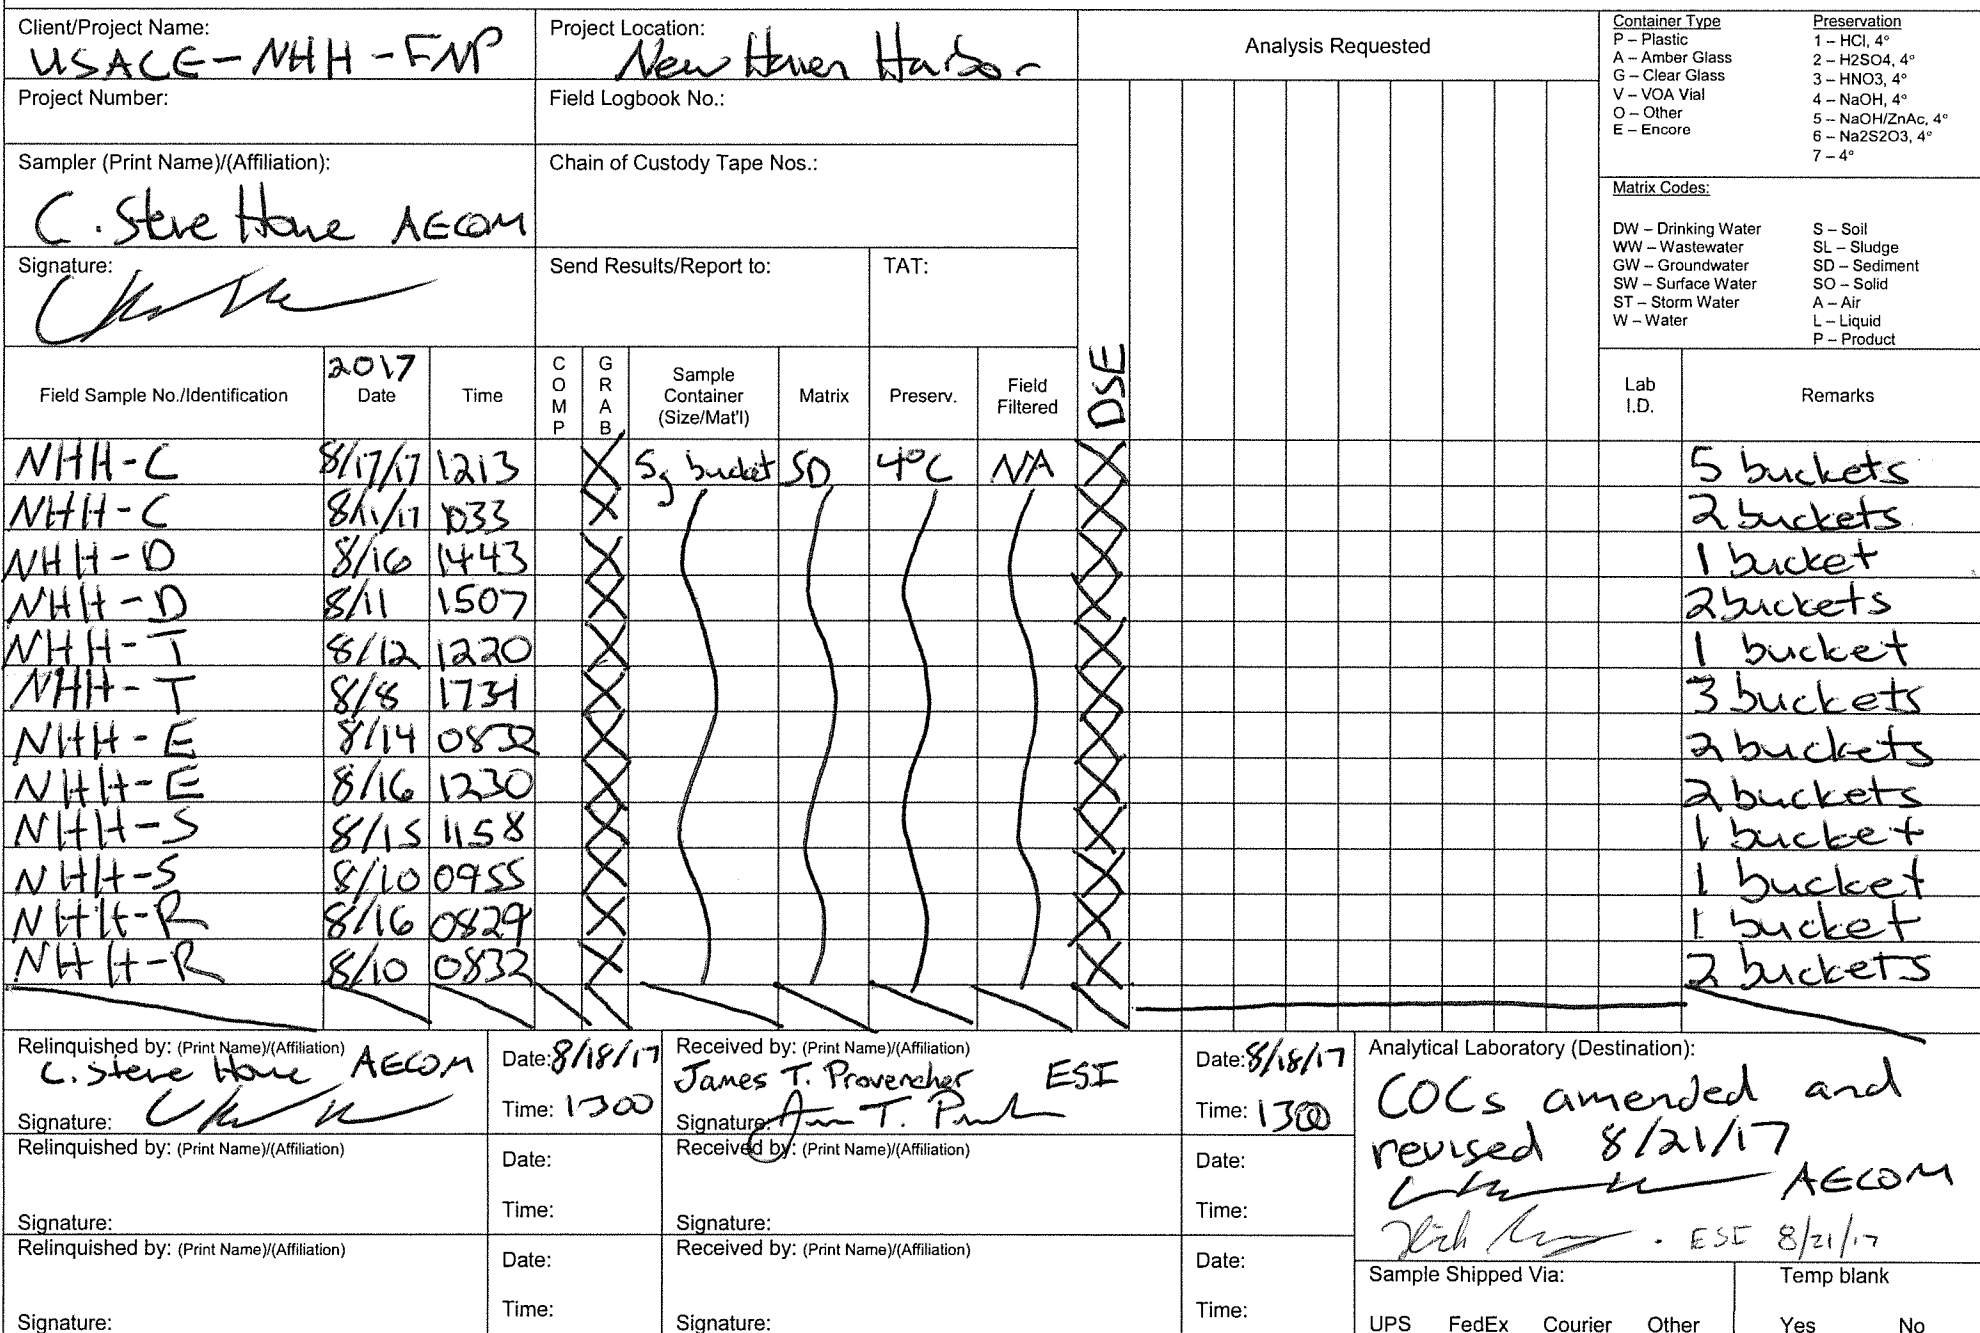 Client/Project Name:
USACE-NHH-FNP
Project Location:
New Haven Harbor
Analysis Requested
Container Type
P – Plastic
A – Amber Glass
G – Clear Glass
V – VOA Vial
O – Other
E – Encore
Preservation
1 – HCl, 4°
2 – H2SO4, 4°
3 – HNO3, 4°
4 – NaOH, 4°
5 – NaOH/ZnAc, 4°
6 – Na2S2O3, 4°
7 – 4°
Project Number:
Field Logbook No.:
Sampler (Print Name)/(Affiliation):
C. Steve Howe AECOM
Chain of Custody Tape Nos.:
Matrix Codes:
DW – Drinking Water
WW – Wastewater
GW – Groundwater
SW – Surface Water
ST – Storm Water
W – Water
S – Soil
SL – Sludge
SD – Sediment
SO – Solid
A – Air
L – Liquid
P – Product
Signature:
Send Results/Report to:
TAT:
Field Sample No./Identification
2017
Date
Time
COMP
GRAB
Sample Container (Size/Mat'l)
Matrix
Preserv.
Field Filtered
DSE
Lab I.D.
Remarks
NHH-C 8/17/17 1213 X 5g bucket SD 4°C NA X 5 buckets
NHH-C 8/11/17 1033 X X 2 buckets
NHH-D 8/16 1443 X X 1 bucket
NHH-D 8/11 1507 X X 2 buckets
NHH-T 8/12 1220 X X 1 bucket
NHH-T 8/8 1731 X X 3 buckets
NHH-E 8/14 0832 X X 2 buckets
NHH-E 8/16 1230 X X 2 buckets
NHH-S 8/15 1158 X X 1 bucket
NHH-S 8/10 0955 X X 1 bucket
NHH-R 8/16 0829 X X 1 bucket
NHH-R 8/10 0832 X X 2 buckets
Relinquished by: (Print Name)/(Affiliation)
C. Steve Howe AECOM
Signature:
Date: 8/18/17
Time: 1300
Received by: (Print Name)/(Affiliation)
James T. Provencher ESI
Signature:
Date: 8/18/17
Time: 1300
Analytical Laboratory (Destination):
COCs amended and
revised 8/21/17
AECOM
ESI 8/21/17
Relinquished by: (Print Name)/(Affiliation)
Signature:
Date:
Time:
Received by: (Print Name)/(Affiliation)
Signature:
Date:
Time:
Relinquished by: (Print Name)/(Affiliation)
Signature:
Date:
Time:
Received by: (Print Name)/(Affiliation)
Signature:
Date:
Time:
Sample Shipped Via:
UPS FedEx Courier Other
Temp blank
Yes No